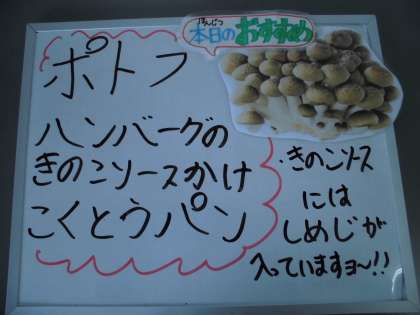 ほんじつ
本日のおすすめ
ポトフ
ハンバーグの
きのこソースかけ
こくとうパン
・きのこソース
には
しめじが
入っていますョ〜!!